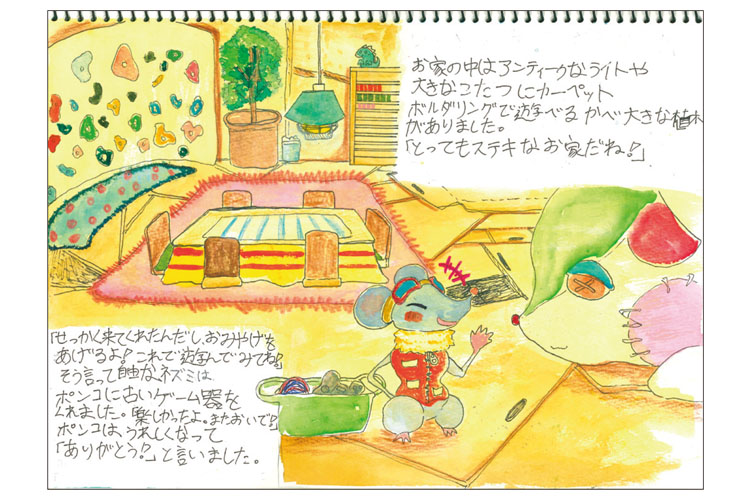 お家の中はアンティークなライトや
大きなこたつにカーペット
ボルダリングで遊べるかべ大きな植木
がありました。
「とってもステキなお家だね！」
「せっかく来てくれたんだし、おみやげを
あげるよ！これで遊んでみてね」
そう言って自由なネズミは
ポンコに古いゲーム器を
くれました。楽しかったよ。またおいで」
ポンコは、うれしくなって
「ありがとう！」と言いました。